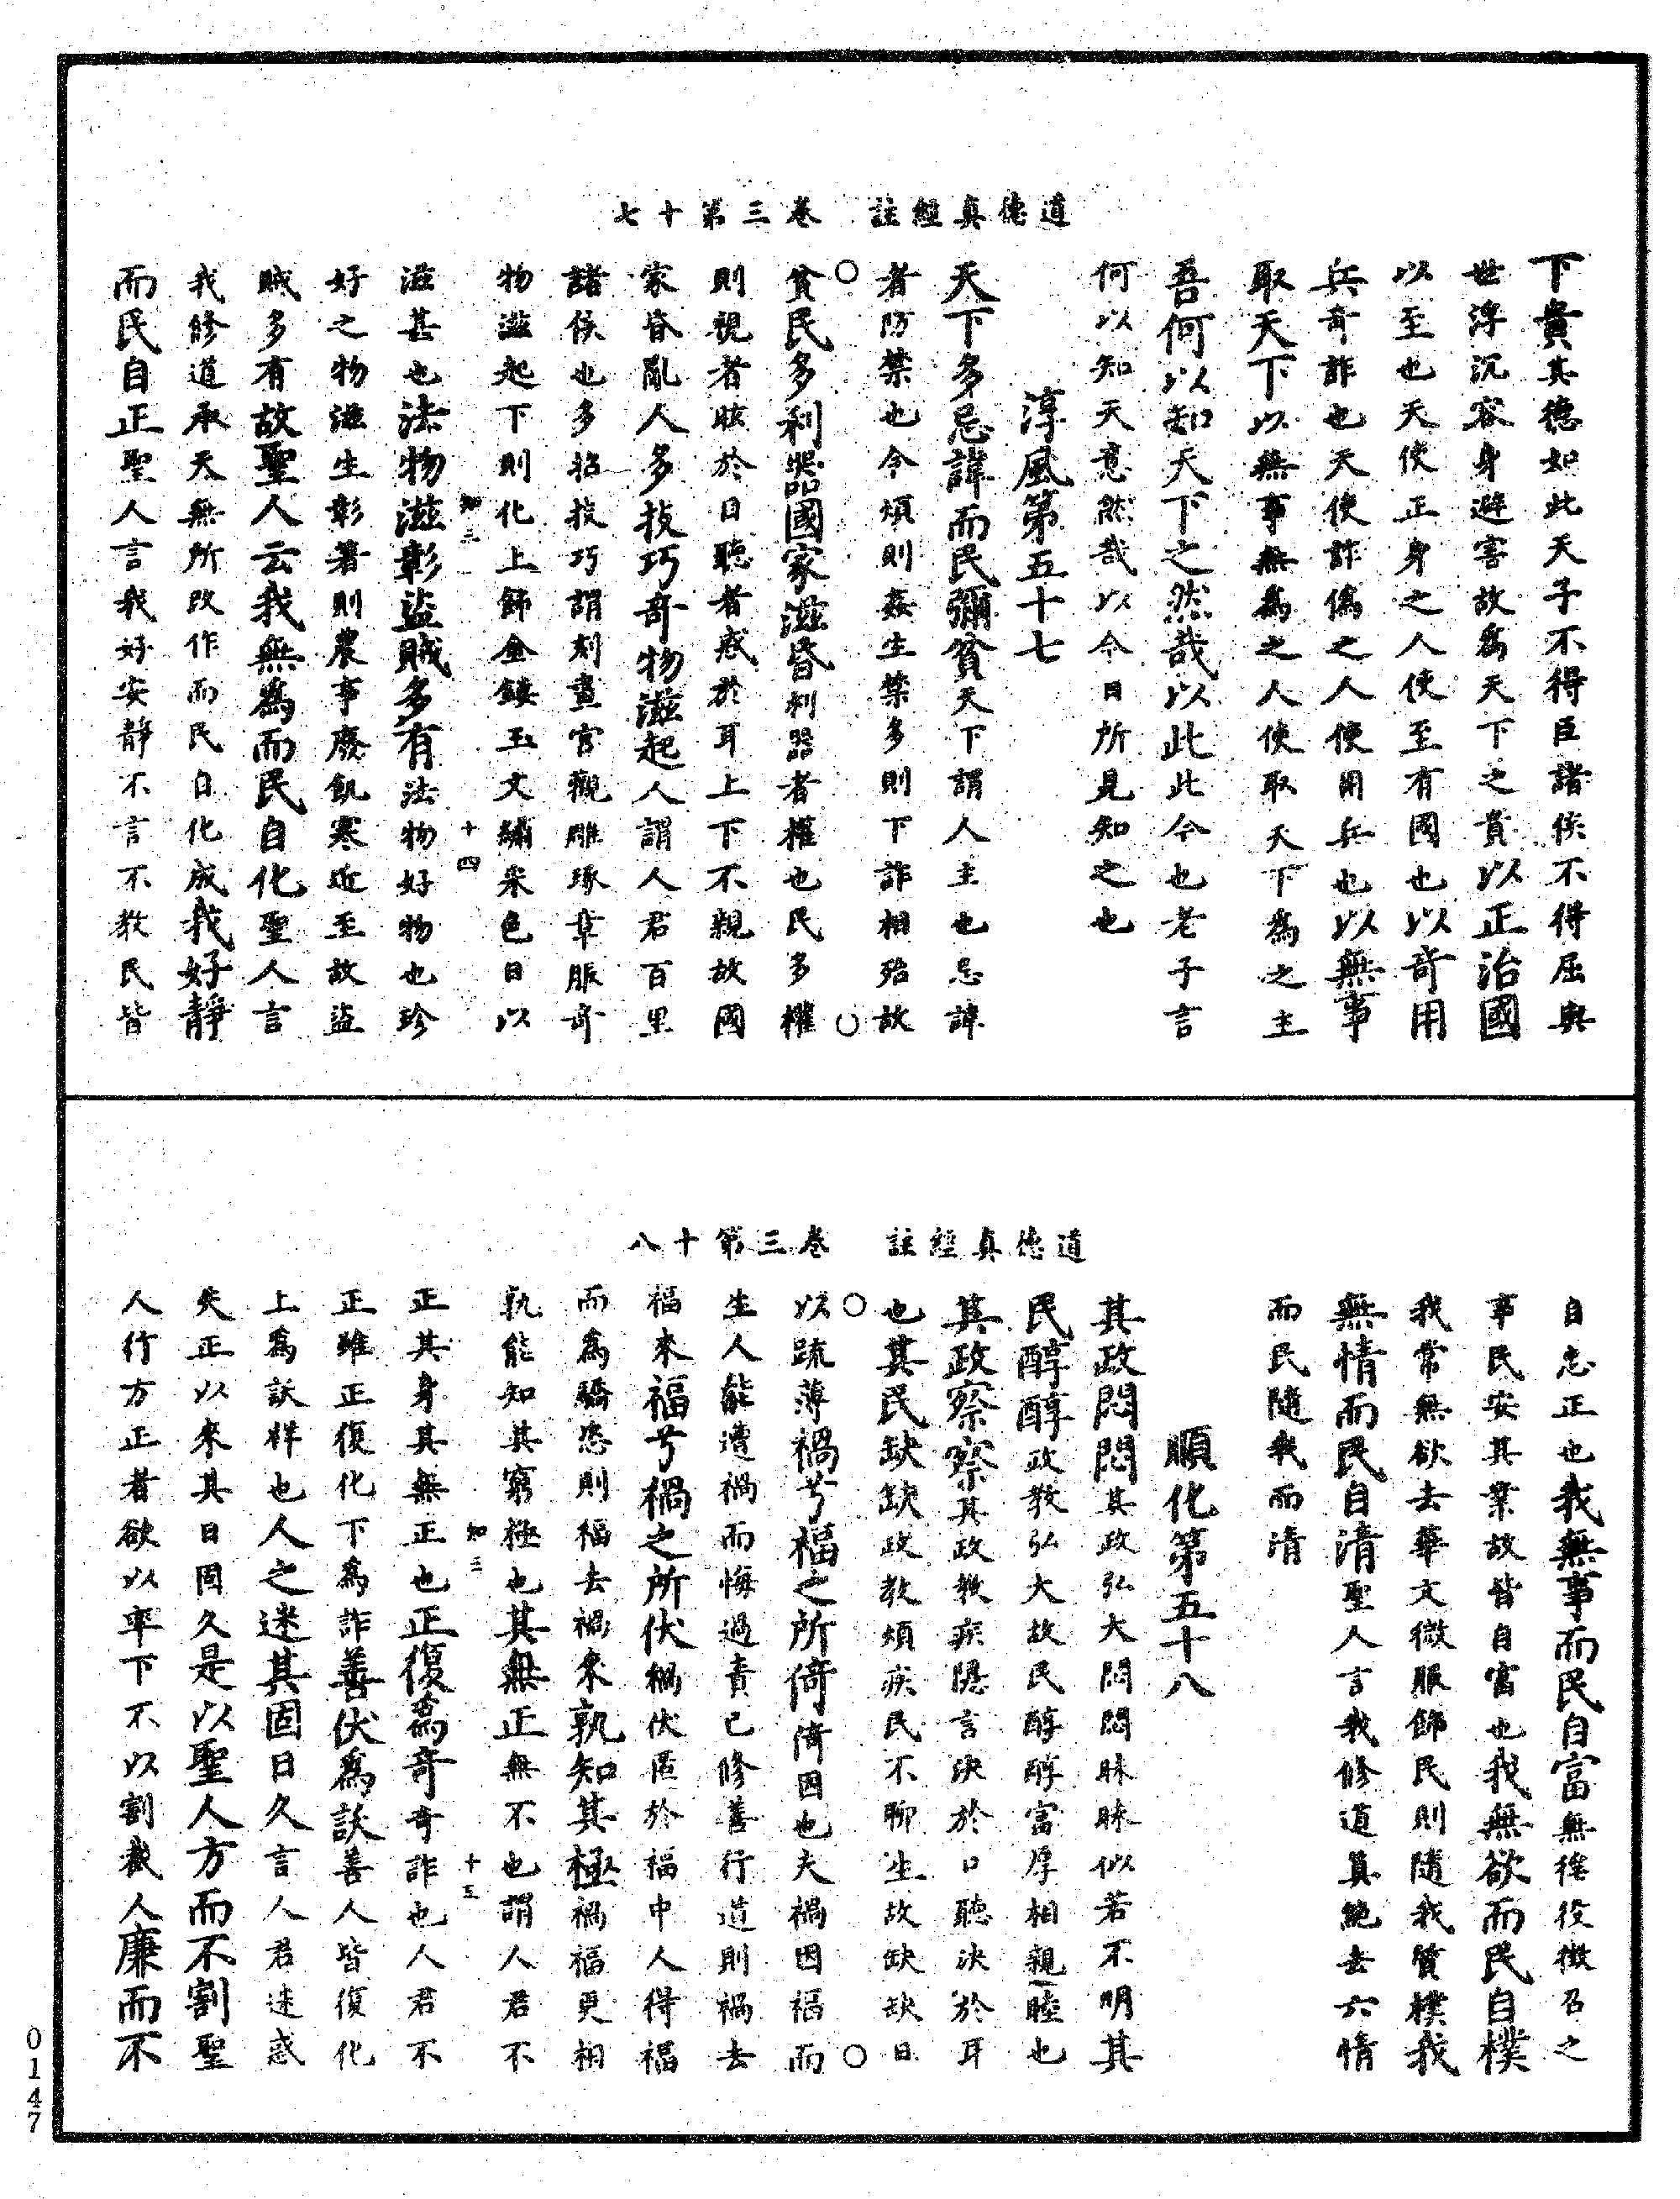 道德真經註 卷三第十七
下貴其德如此天子不得臣諸侯不得屈與
世浮沉容身避害故為天下之貴以正治國
以至也天使正身之人使至有國也以奇用
兵奇詐也天使詐偽之人使用兵也以無事
取天下以無事無為之人使取天下為之主
吾何以知天下之然哉以此此今也老子言
何以知天意然哉以今日所見知之也
淳風第五十七
天下多忌諱而民彌貧天下謂人主也忌諱
者防禁也令煩則姦生禁多則下詐相殆故
貧民多利器國家滋昏利器者權也民多權
則視者眩於目聽者惑於耳上下不親故國
家昏亂人多技巧奇物滋起人謂人君百里
諸侯也多招技巧謂刻畫宮觀雕琢章服奇
物滋起下則化上飾金鏤玉文繡采色日以
知三 十四
滋甚也法物滋彰盜賊多有法物好物也珍
好之物滋生彰著則農事廢飢寒近至故盜
賊多有故聖人云我無為而民自化聖人言
我修道承天無所改作而民自化成我好靜
而民自正聖人言我好安靜不言不教民皆
道德真經註 卷三第十八
自忠正也我無事而民自富無徭役徵召之
事民安其業故皆自富也我無欲而民自樸
我常無欲去華文微服飾民則隨我質樸我
無情而民自清聖人言我修道真絕去六情
而民隨我而清
順化第五十八
其政悶悶其政弘大悶悶昧昧似若不明其
民醇醇政教弘大故民醇醇富厚相親睦也
其政察察其政教疾隱言決於口聽決於耳
也其民缺缺政教煩疾民不聊生故缺缺日
以疏薄禍兮福之所倚倚因也夫禍因福而
生人能遭禍而悔過責己修善行道則禍去
福來福兮禍之所伏禍伏匿於福中人得福
而為驕恣則福去禍來孰知其極禍福更相
孰能知其窮極也其無正無不也謂人君不
知三 十五
正其身其無正也正復為奇奇詐也人君不
正雖正復化下為詐善復為訞善人皆復化
上為訞祥也人之迷其固日久言人君迷惑
失正以來其日固久是以聖人方而不割聖
人行方正者欲以率下不以割截人廉而不
0147